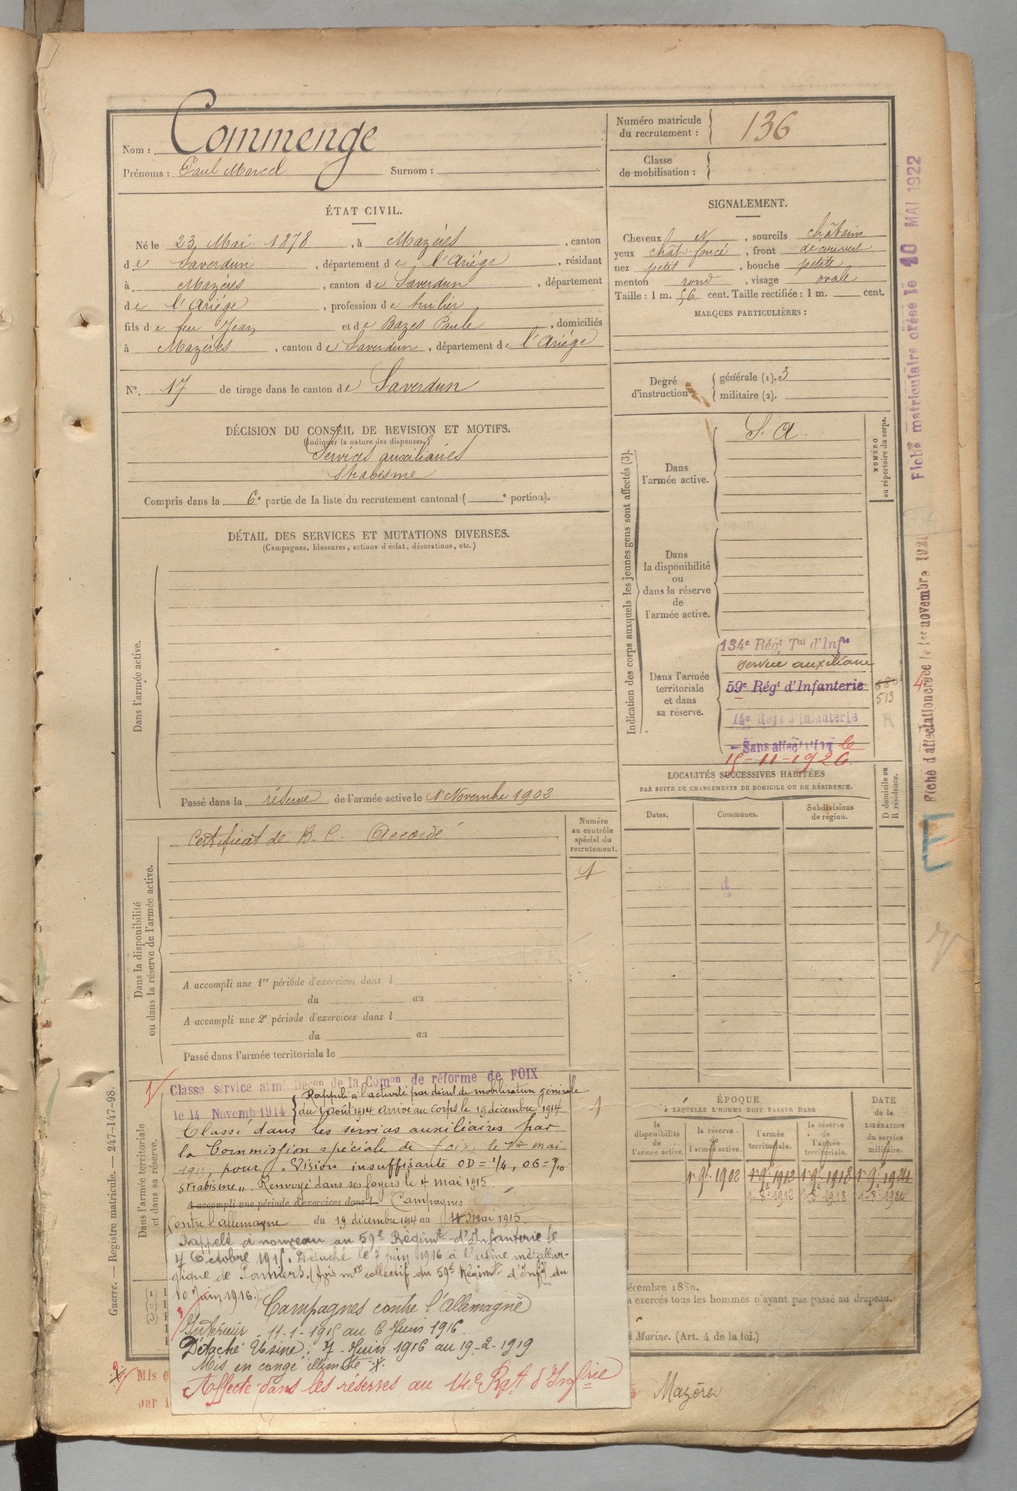 Nom : Commenge
Prénoms : Paul Marcel Surnom :
Numéro matricule du recrutement : 136
Classe de mobilisation :
ÉTAT CIVIL.
Né le 23 Mai 1878, à Mazères, canton
de Saverdun, département de l'Ariège, résidant
à Mazères, canton de Saverdun, département
de l'Ariège, profession de
fils de feu Jean et de Bazes Paule, domiciliés
à Mazères, canton de Saverdun, département de l'Ariège
N° 17 de tirage dans le canton de Saverdun
SIGNALEMENT.
Cheveux N, sourcils châtains
yeux chât. foncé, front découvert
nez petit, bouche petite
menton rond, visage ovale
Taille : 1 m. 56 cent. Taille rectifiée : 1 m. cent.
MARQUES PARTICULIÈRES :
Degré d'instruction générale (1). 3
militaire (2).
DÉCISION DU CONSEIL DE REVISION ET MOTIFS.
(Indiquer la nature des dispenses.)
Services auxiliaires
Strabisme
Compris dans la 6e partie de la liste du recrutement cantonal ( e portion).
DÉTAIL DES SERVICES ET MUTATIONS DIVERSES.
(Campagnes, blessures, actions d'éclat, décorations, etc.)
Dans l'armée active.
Passé dans la réserve de l'armée active le 1er Novembre 1903
Dans la disponibilité ou dans la réserve de l'armée active.
Certificat de B. C. Accordé
Numéro au contrôle spécial du recrutement.
1
A accompli une 1re période d'exercices dans l
du au
A accompli une 2e période d'exercices dans l
du au
Passé dans l'armée territoriale le
Dans l'armée territoriale et dans sa réserve.
Classé service armé Décon de la Comon de réforme de FOIX
le 14 Novemb 1914
Rappelé à l'activité par décret de mobilisation générale
du 1 août 1914. Arrivé au corps le 19 décembre 1914
Classé dans les services auxiliaires par
la Commission spéciale de Foix, le 1er mai
1915, pour "Vision insuffisante OD = 1/4, OG =
strabisme". Renvoyé dans ses foyers le 4 mai 1915
A accompli une période d'exercices dans l Campagnes
Contre l'Allemagne du 19 décembre 1914 au 4 mai 1915.
Rappelé à nouveau au 59e Régimt d'Infanterie le
7 Octobre 1915. Détaché le 7 juin 1916 à l'usine métallur-
gique de Pamiers. (Avis mon collectif du 59e Régimt d'Inf du
10 juin 1916.)
Campagnes contre l'Allemagne
Intérieur 11-1-1915 au 6 Juin 1916
Détaché Usine : 7 Juin 1916 au 19-2-1919
Mis en congé illimité
Affecté dans les réserves au 14e Rgt d'Infrie
Indication des corps auxquels les jeunes gens sont affectés (3).
NUMÉRO au répertoire du corps.
Dans l'armée active.
S. A.
Dans la disponibilité ou dans la réserve de l'armée active.
Dans l'armée territoriale et dans sa réserve.
134e Régt Tal d'Infie
service auxiliaire
59e Régt d'Infanterie
513
14e Régt d'Infanterie
Sans affectation le
15-11-1926.
LOCALITÉS SUCCESSIVES HABITÉES
PAR SUITE DE CHANGEMENTS DE DOMICILE OU DE RÉSIDENCE.
Dates. Communes. Subdivisions de région. D domicile ou R résidence.
ÉPOQUE
À LAQUELLE L'HOMME DOIT PASSER DANS
DATE de la LIBÉRATION du service militaire.
la disponibilité de l'armée active. la réserve de l'armée active. l'armée territoriale. la réserve de l'armée territoriale.
1er 9bre 1902 1er 9bre 1912 1er 9bre 1918 1er 9bre 1924
décembre 1880.
a exercés tous les hommes n'ayant pas passé au drapeau.
Marine. (Art. 4 de la loi.)
Mazères
Fiche matriculaire créée le 20 MAI 1922
Fiche d'affectation créée le 1er novembre 1921
Guerre. — Registre matricule. — 247-147-98.